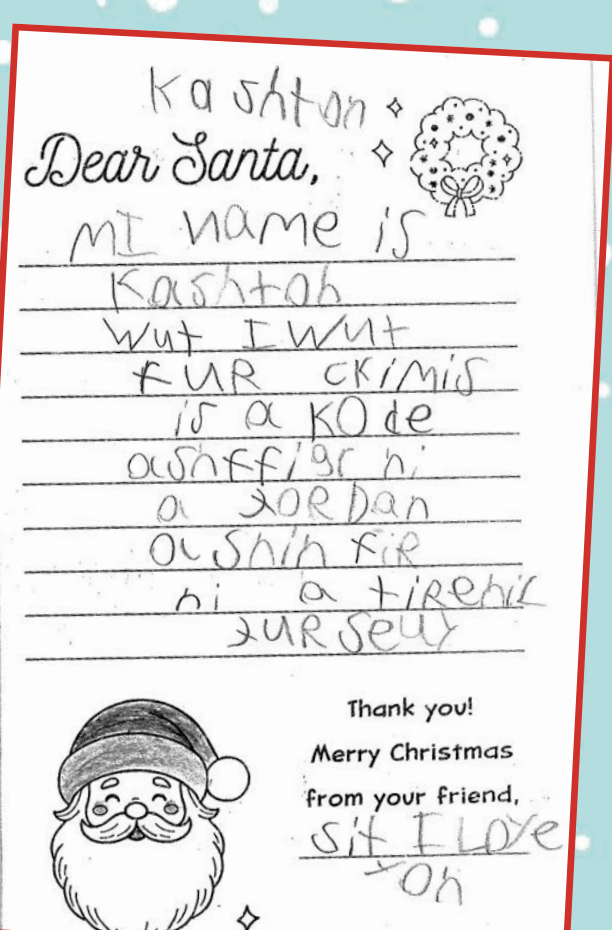 Kashton
Dear Santa,
MI name is
Kashton
Wut I Wut
fUR cKimis
is a KOde
ashffigr ni
a JORDan
a shin fiR
ni a tiRenic
JURSeUy
Thank you!
Merry Christmas
from your friend,
Sit I LOVe
YOn